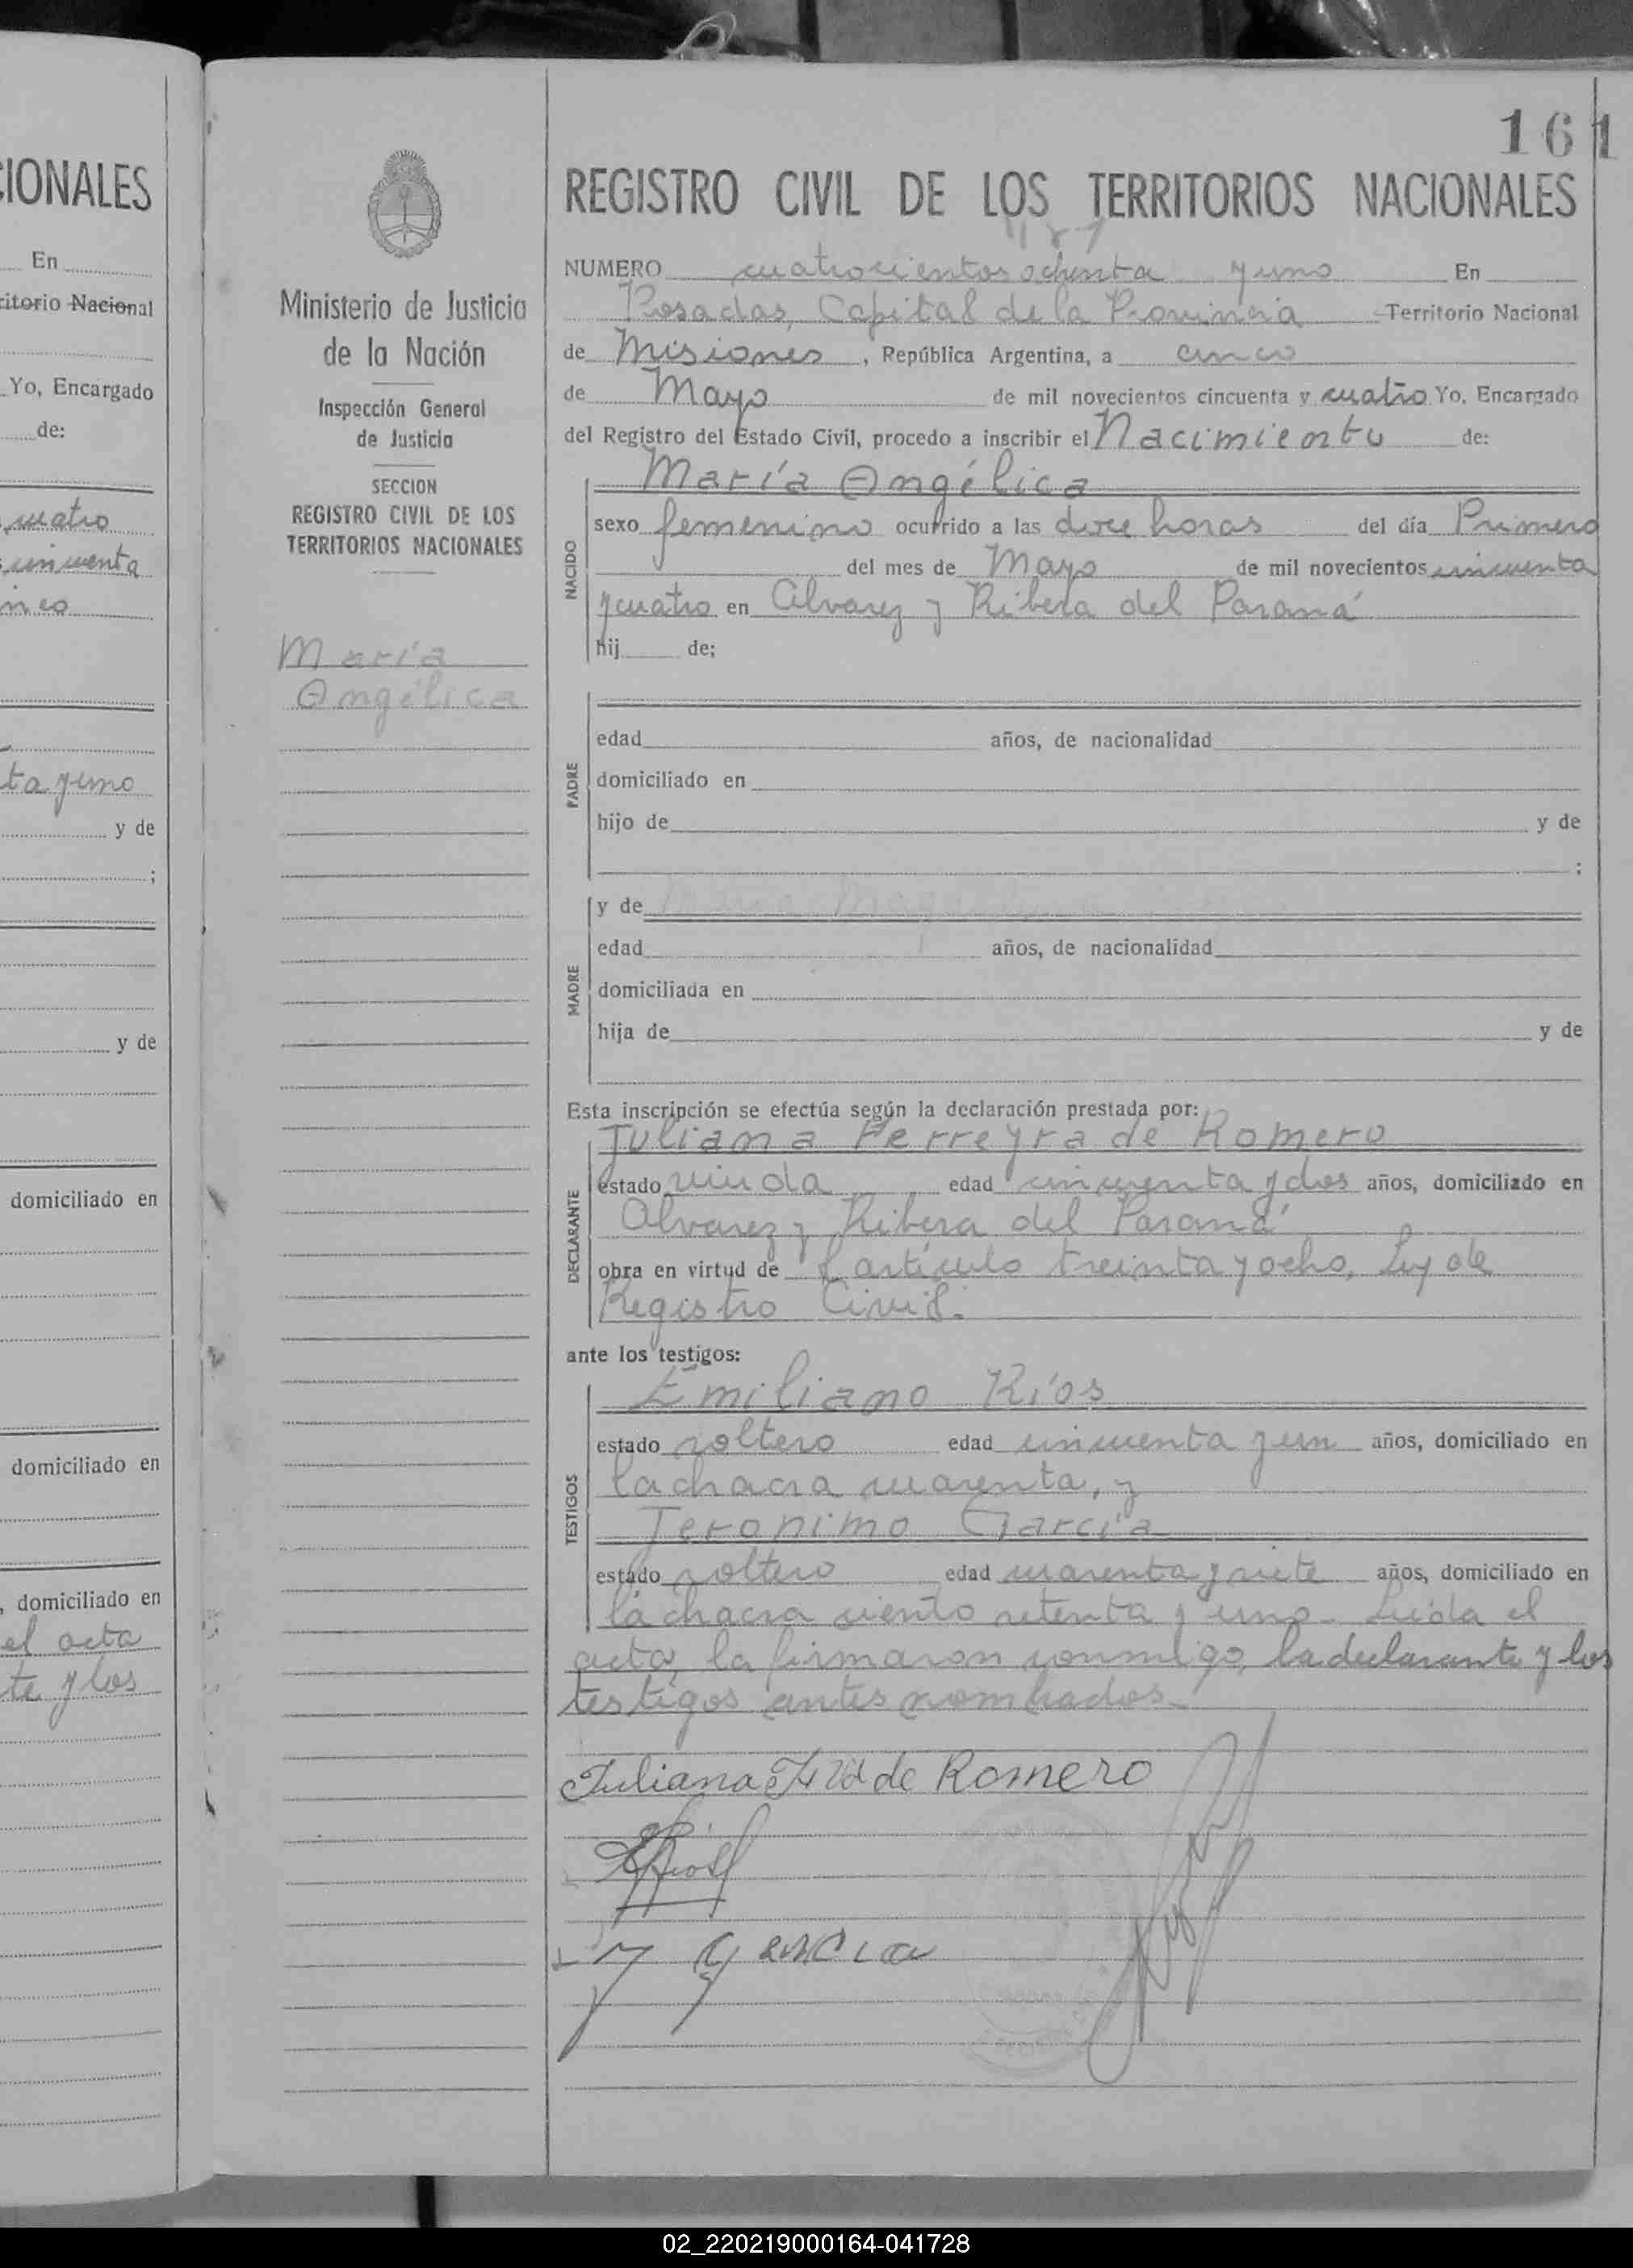 161
CIONALES
En
ritorio Nacional
Yo, Encargado
de:
cuatro
cincuenta
inco
ta y uno
y de
;
y de
domiciliado en
domiciliado en
, domiciliado en
el acta
te y los
Ministerio de Justicia
de la Nación
Inspección General
de Justicia
SECCION
REGISTRO CIVIL DE LOS
TERRITORIOS NACIONALES
María
Angélica
REGISTRO CIVIL DE LOS TERRITORIOS NACIONALES
NUMERO cuatrocientos ochenta y uno En
Posadas, Capital de la Provincia Territorio Nacional
de Misiones, República Argentina, a cinco
de Mayo de mil novecientos cincuenta y cuatro Yo, Encargado
del Registro del Estado Civil, procedo a inscribir el Nacimiento de:
María Angélica
NACIDO
sexo femenino ocurrido a las doce horas del día Primero
del mes de Mayo de mil novecientos cincuenta
y cuatro en Alvarez y Ribera del Paraná
hij de;
PADRE
edad años, de nacionalidad
domiciliado en
hijo de y de
;
y de
MADRE
edad años, de nacionalidad
domiciliada en
hija de y de
Esta inscripción se efectúa según la declaración prestada por:
Juliana Ferreyra de Romero
DECLARANTE
estado viuda edad cincuenta y dos años, domiciliado en
Alvarez y Ribera del Paraná
obra en virtud de l artículo treinta y ocho, Ley de
Registro Civil.
ante los testigos:
Emiliano Ríos
TESTIGOS
estado soltero edad cincuenta y un años, domiciliado en
la chacra cuarenta, y
Jeronimo García
estado soltero edad cuarenta y siete años, domiciliado en
la chacra ciento setenta y uno. Leída el
acta, la firmaron conmigo, la declarante y los
testigos antes nombrados.
Juliana de Romero
ERios
J Garcia
02_220219000164-041728